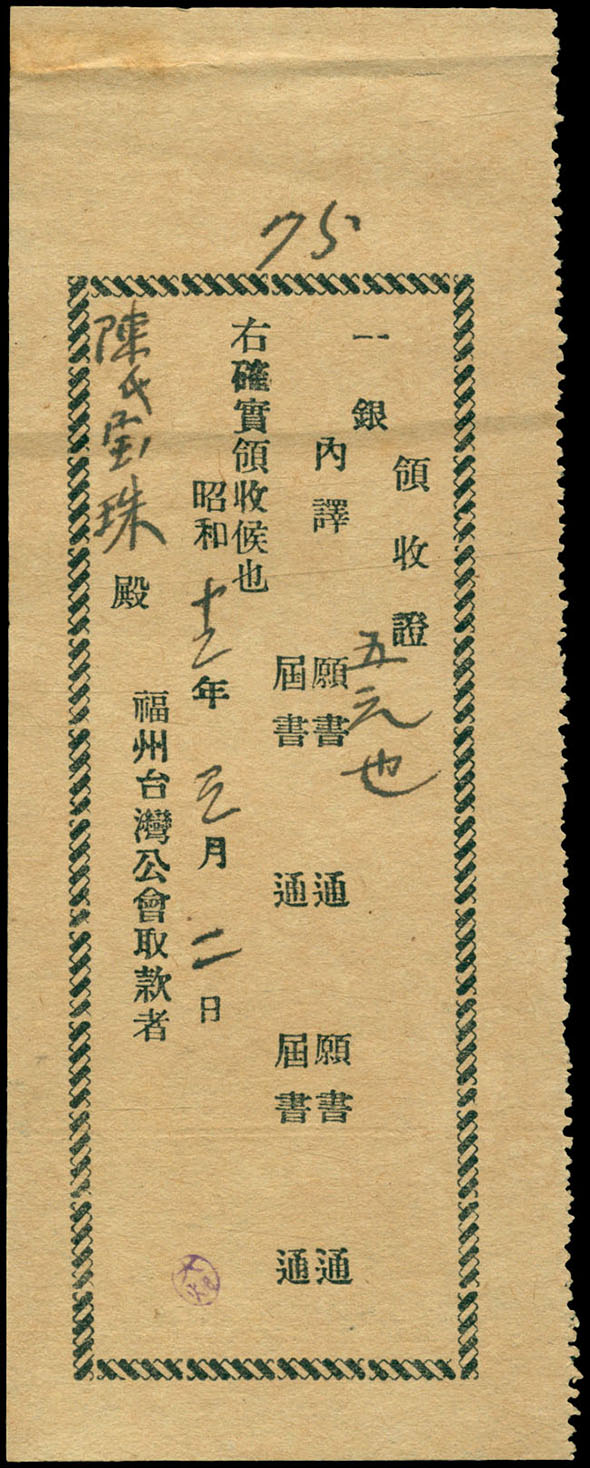 75
領收證
一銀 五元也
內譯 願書 通 願書 通
屆書 通 屆書 通
右確實領收候也
昭和十二年三月二日
福州台灣公會取款者
陳氏宝珠殿